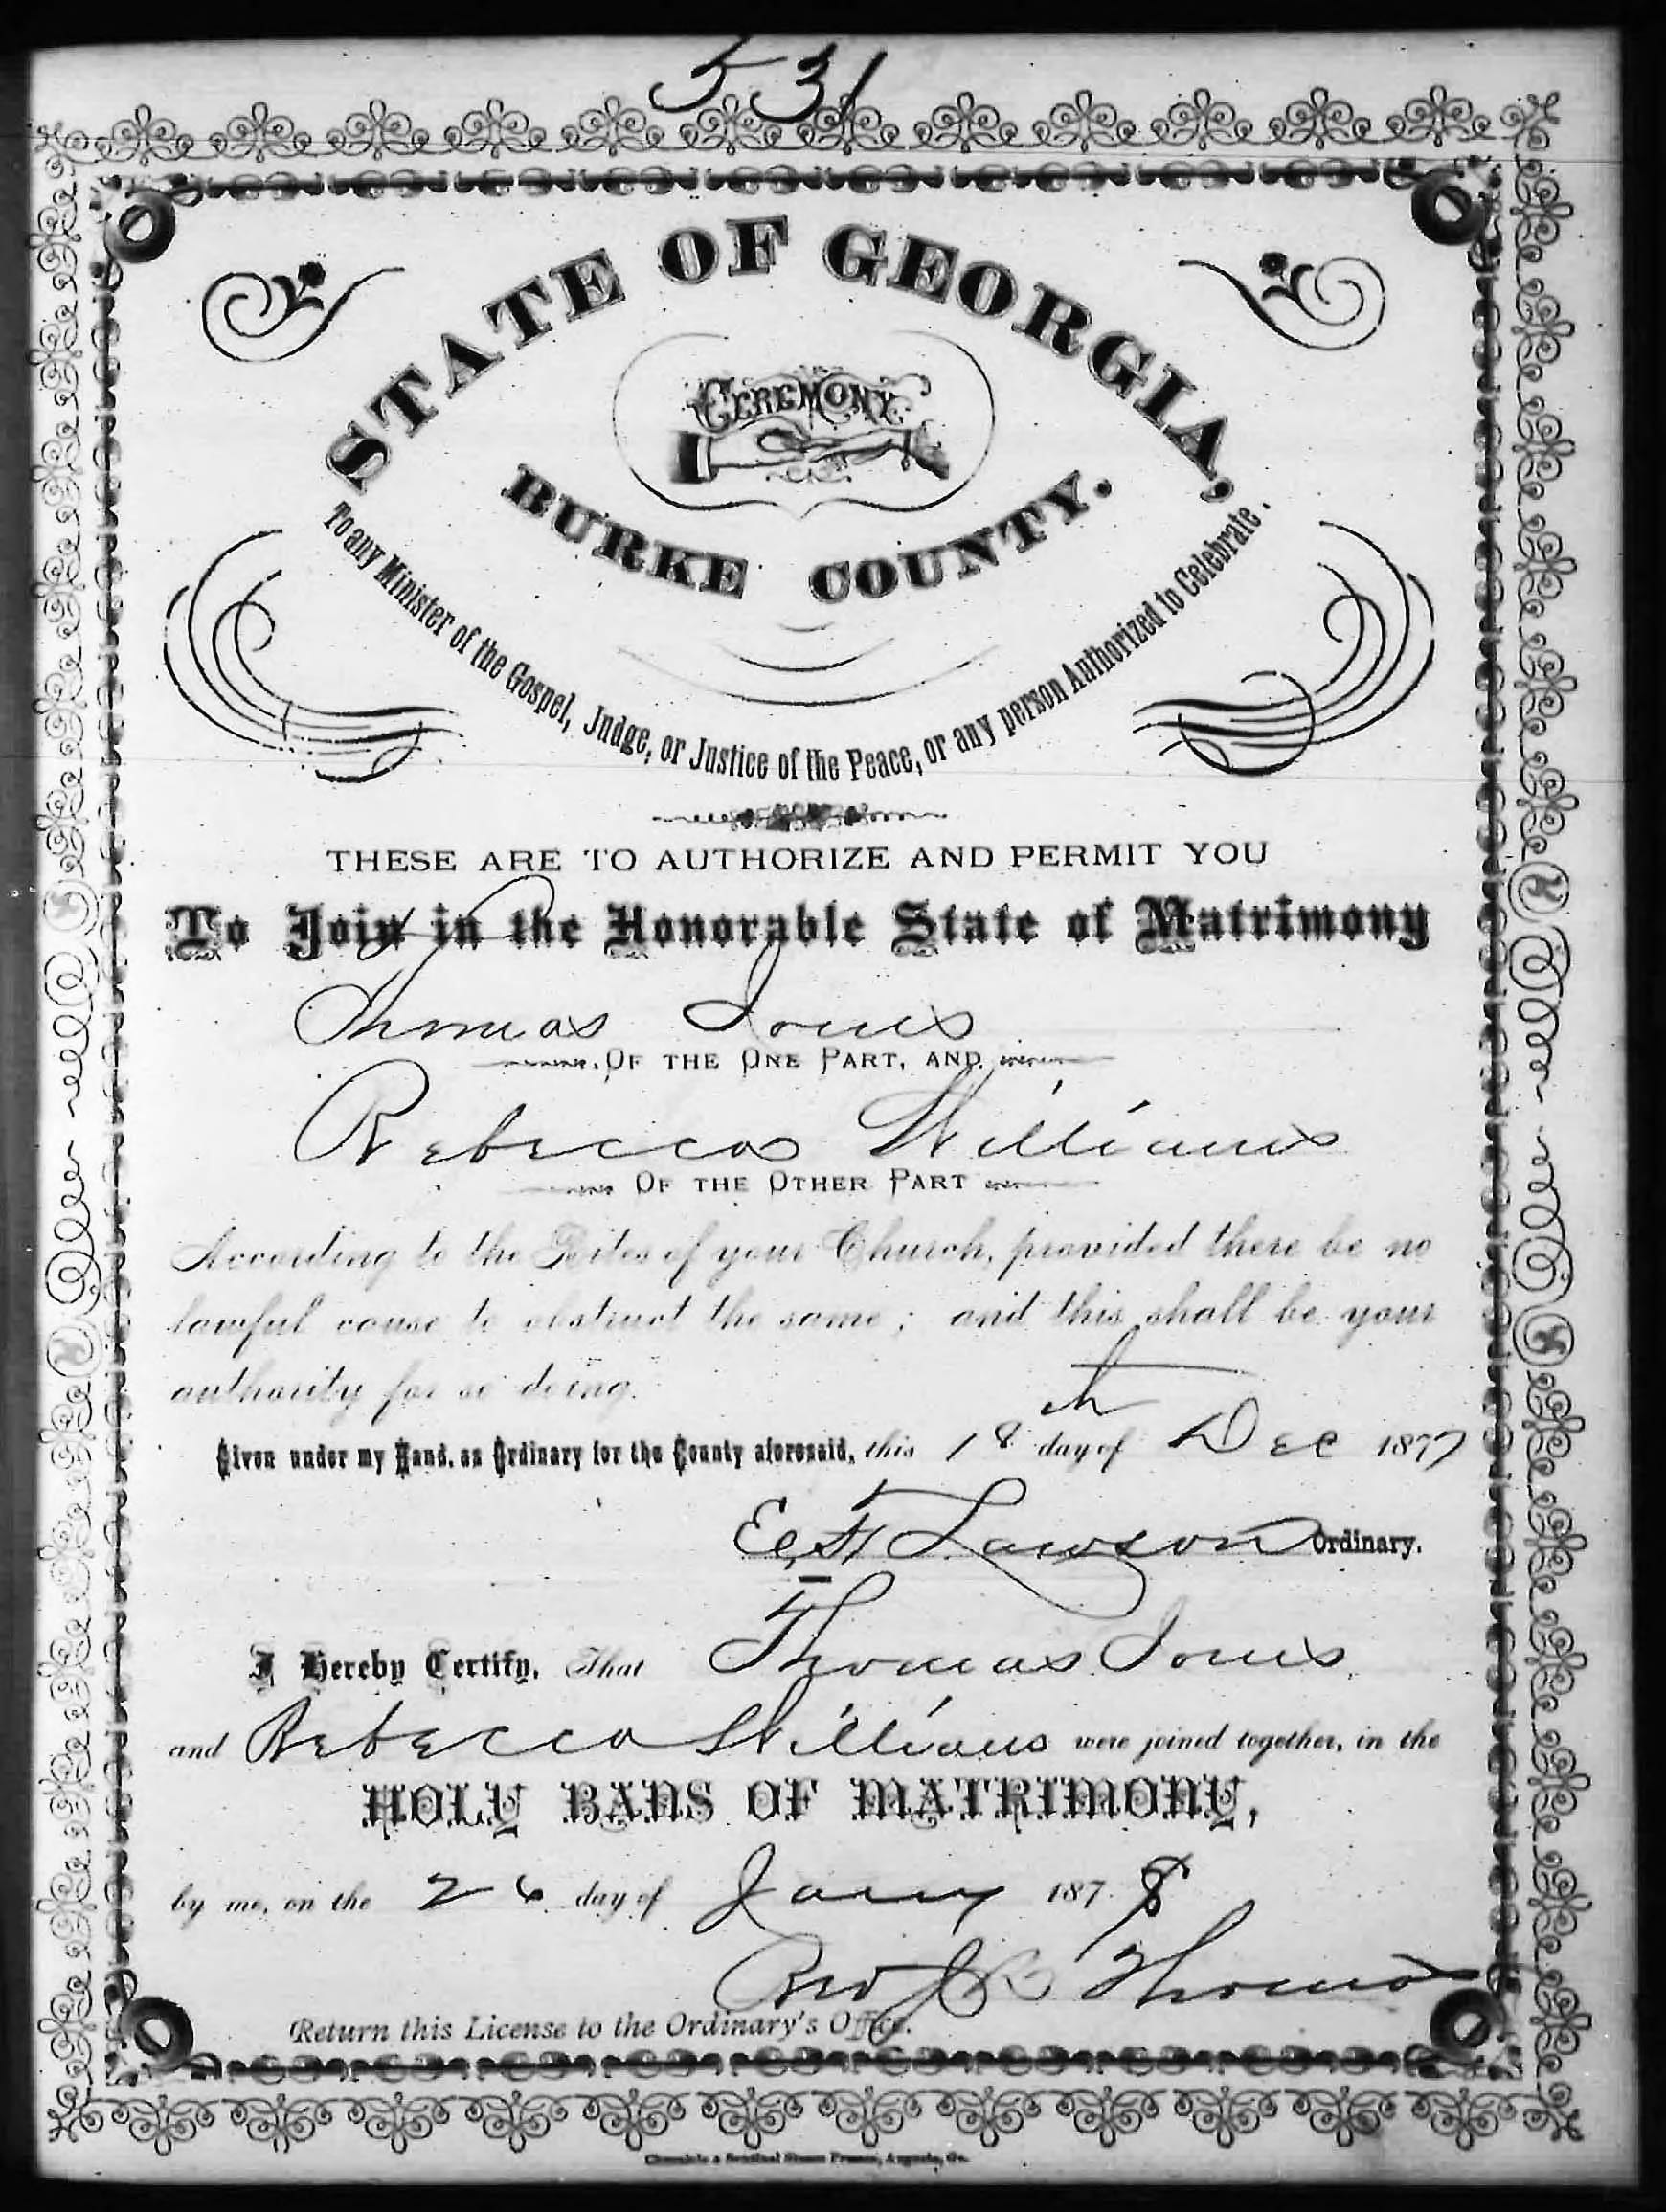 531
STATE OF GEORGIA,
CEREMONY
BURKE COUNTY.
To any Minister of the Gospel, Judge, or Justice of the Peace, or any person Authorized to Celebrate.
THESE ARE TO AUTHORIZE AND PERMIT YOU
To Join in the Honorable State of Matrimony
Thomas Jones
OF THE ONE PART, AND
Rebecca Williams
OF THE OTHER PART
According to the Rites of your Church, provided there be no
lawful cause to obstruct the same; and this shall be your
authority for so doing.
Given under my Hand, as Ordinary for the County aforesaid, this 18th day of Dec 1877
E. F. Lawson Ordinary.
I Hereby Certify, That Thomas Jones
and Rebecca Williams were joined together, in the
HOLY BANS OF MATRIMONY,
by me, on the 26 day of Jany 1878
Rev J R Thomas
Return this License to the Ordinary's Office.
Chronicle & Sentinel Steam Presses, Augusta, Ga.